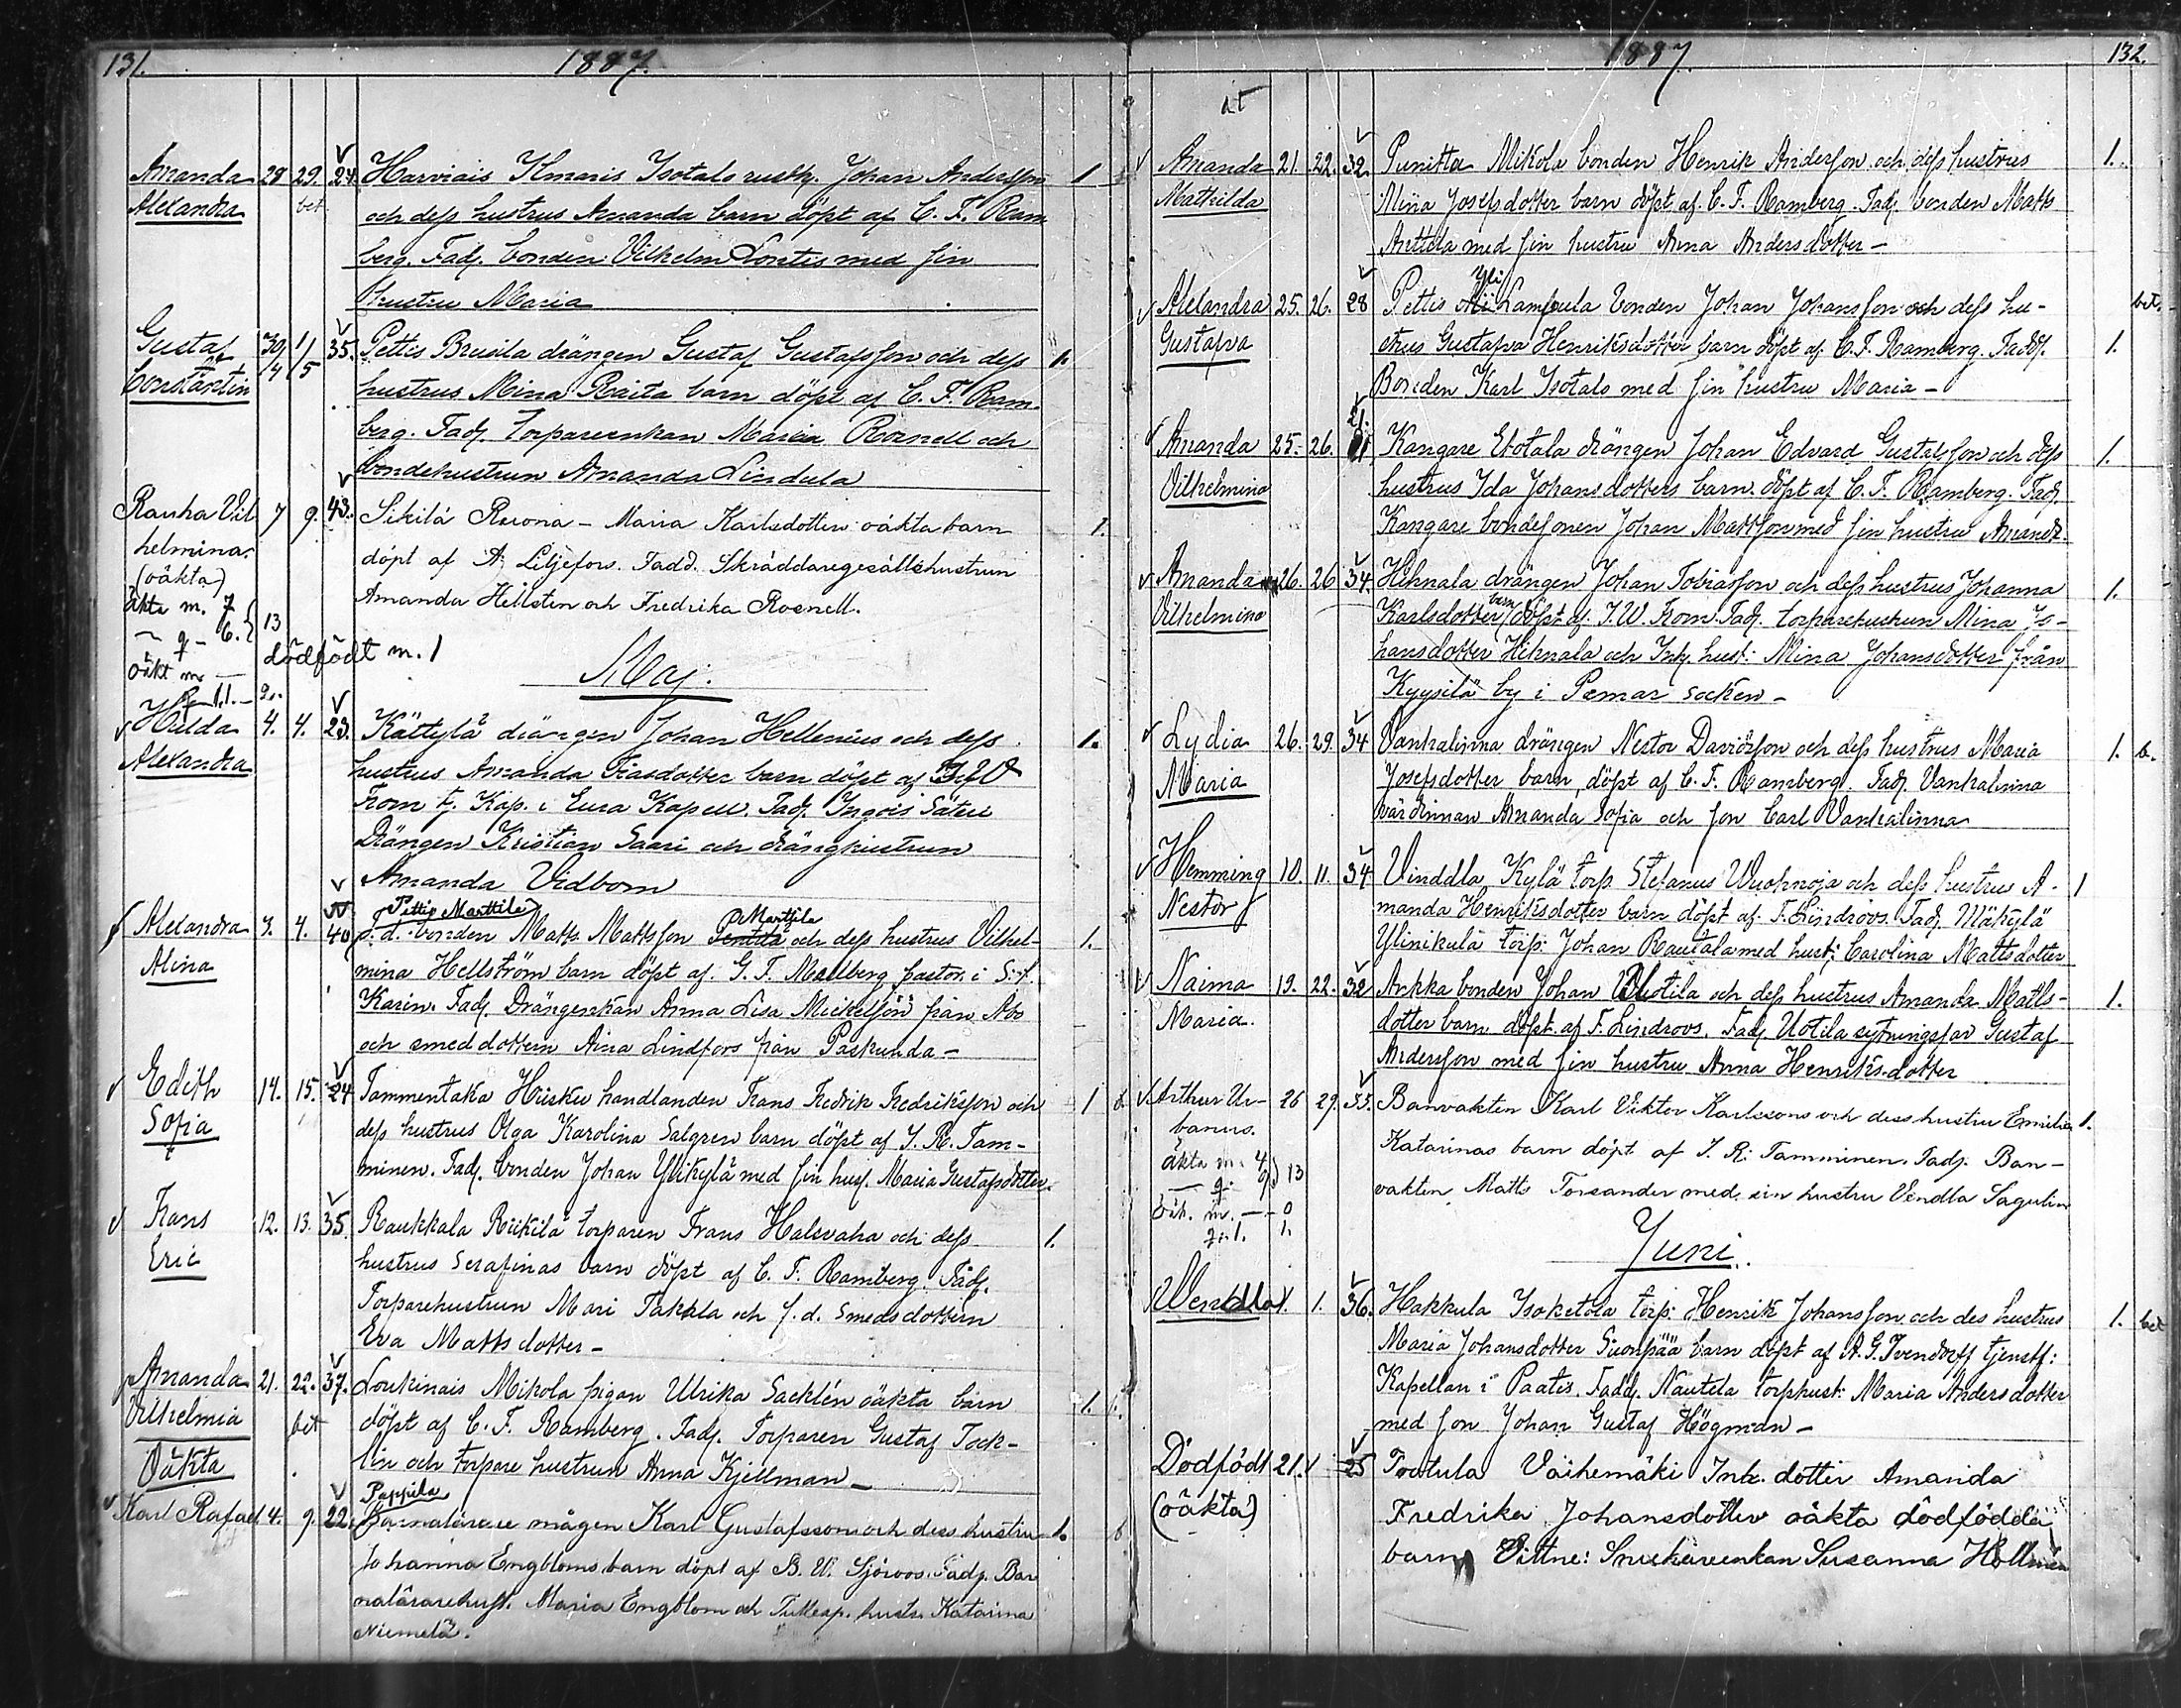 131. 1887.
Amanda 28 29. 24. Harviais Ilmaris Isotalo rusth. Johan Andersson 1
Alexandra bet. och dess hustrus Amanda barn döpt af C. F. Ram
berg. Fadd. bonden Vilhelm Lontis med sin
hustru Maria
Gustaf 30/4 1/5 35. Pettis Breisila drängen Gustaf Gustafsson och dess 1.
Constantin hustrus Mina Raita barn döpt af C. F. Ram-
berg. Fadd. torpareenkan Maria Rosnell och
bondehustrun Amanda Lindula
Rauha Vil 7 9. 43. Sikilä Maria Karlsdotter oäkta barn 1.
helmina. döpt af A. Liljefors. Fadd. Skräddaregesällshustrun
(oäkta) Amanda Hellsten och Fredrika Rosnell.
Äkta m. 7
q - 6. 13
dödfödt m. 1
Oäkt m. —
Maj.
Hilda 4. 4. 23. Kättylä drängen Johan Hellenius och dess 1.
Alexandra hustrus Amanda barn döpt af
From tj. Kap. i Eura Kapell. Fadd. Ingois Säteri
Drängen Kristian Saari och dränghustrun
Amanda Vidbom
Pettis Marttila
Alexandra 3. 4. 40 f.d. bonden Matts Mattsson Marttila och dess hustrus Vilhel- 1.
Alina mina Hellström barn döpt af G. F. Malberg pastor i S:t
Karins. Fadd. Drängenkan Anna Lisa från Åbo
och smeddottern Aina Lindfors från Paskunda -
Edith 14. 15. 24 Tammentaka Heisku handlanden Frans Fredrik Fredriksson och 1
Sofia dess hustrus Olga Karolina Salgren barn döpt af J. R. Tam-
minen. Fadd. bonden Johan Ylikylä med sin hust. Maria Gustafsdotter.
Frans 12. 13. 35. Raukkala Riikilä torparen Frans Halsvaha och dess 1.
Eric hustrus Serafinas barn döpt af C. F. Ramberg. Fadd.
Torparehustrun Mari Takkula och f. d. Smedsdottern
Eva Mattsdotter -
Amanda 21. 22. 37. Loukinais Mikola pigan Ulrika Sacklén oäkta barn 1.
Vilhelmia bet döpt af C. F. Ramberg. Fadd. Torparen Gustaf Tock-
Oäkta lin och torpare hustrun Anna Kjellman -
Pappila
Karl Rafael 4. 9. 22. mågen Karl Gustafsson och dess hustru 1.
Johanna Engbloms barn döpt af B. W. Sjöroos. Fadd. Bar
nalärarehust. Maria Engblom och hustr. Katarina
Niemelä.
1887. 132.
Amanda 21. 22. 32. Punitta Mikola bonden Henrik Andersson och dess hustrus 1.
Mathilda Mina Josefsdotter barn döpt af C. F. Ramberg. Fadd. bonden Matts
Anttila med sin hustru Anna Andersdotter -
Yli
Alexandra 25. 26. 28 Pettis Lampula bonden Johan Johansson och dess hu- bet.
Gustafva strus Gustafva Henriksdotter barn döpt af C. F. Ramberg. Fadd. 1.
Bonden Karl Isotalo med sin hustru Maria -
21.
Amanda 25. 26. Kangare Etotala drängen Johan Edvard Gustafsson och dess 1.
Vilhelmina hustrus Ida Johansdotters barn döpt af C. F. Ramberg. Fadd.
Kangare bondesonen Johan Mattsson med sin hustru Amanda.
Amanda 26. 26 34. Hihnala drängen Johan Tobiasson och dess hustrus Johanna 1.
Vilhelmina Karlsdotter barn döpt af J. W. From. Fadd. torparehustrun Mina Jo-
hansdotter Hihnala och Inh. hust: Mina Johansdotter från
Kyysilä by i Pemar socken -
Lydia 26. 29. 34 Vanhalinna drängen Nestor Davidsson och dess hustrus Maria 1. b.
Maria Josefsdotter barn, döpt af C. F. Ramberg. Fadd. Vanhalinna
värdinnan Amanda Sofia och son Carl Vanhalinna
Hemming 10. 11. 34 Vinddla Kylä torp. Stefanus Wuohnoja och dess hustrus A- 1
Nestor manda Henriksdotter barn döpt af F. Lindroos. Fadd. Mäkylä
Ylinikula torp: Johan Rautala med hust: Carolina Mattsdotter
Naima 19. 22. 32 Arkka bonden Johan Uotila och dess hustrus Amanda Matts- 1.
Maria. dotter barn döpt af F. Lindroos. Fadd. Uotila sytningsfar Gustaf
Andersson med sin hustru Anna Henriksdotter
Arthur Ur- 26 29. 33. Banvakten Karl Viktor Karlssons och dess hustru Emilia 1.
banus. Katarinas barn döpt af J. R. Tamminen. Fadd. Ban-
Äkta m. 4 vakten Matts Torsander med sin hustru Vendla Sagulin
q. 9 13
Oäk. m. — 0
q. 1. 1.
Juni.
Wendla 1. 1. 36. Hakkula Isoketola torp: Henrik Johansson och des hustrus 1. bet
Maria Johansdotter Suonpää barn döpt af A. G. Ivendorff tjenstf:
Kapellan i Paatis. Fadd. Nautela torphust: Maria Andersdotter
med son Johan Gustaf Högman -
Dödfödt 21. 25 Tortula Vaihemäki Inh. dotter Amanda
(oäkta) Fredrika Johansdotter oäkta dödfödda
barn Vittne: Snickareenkan Susanna Hellmén